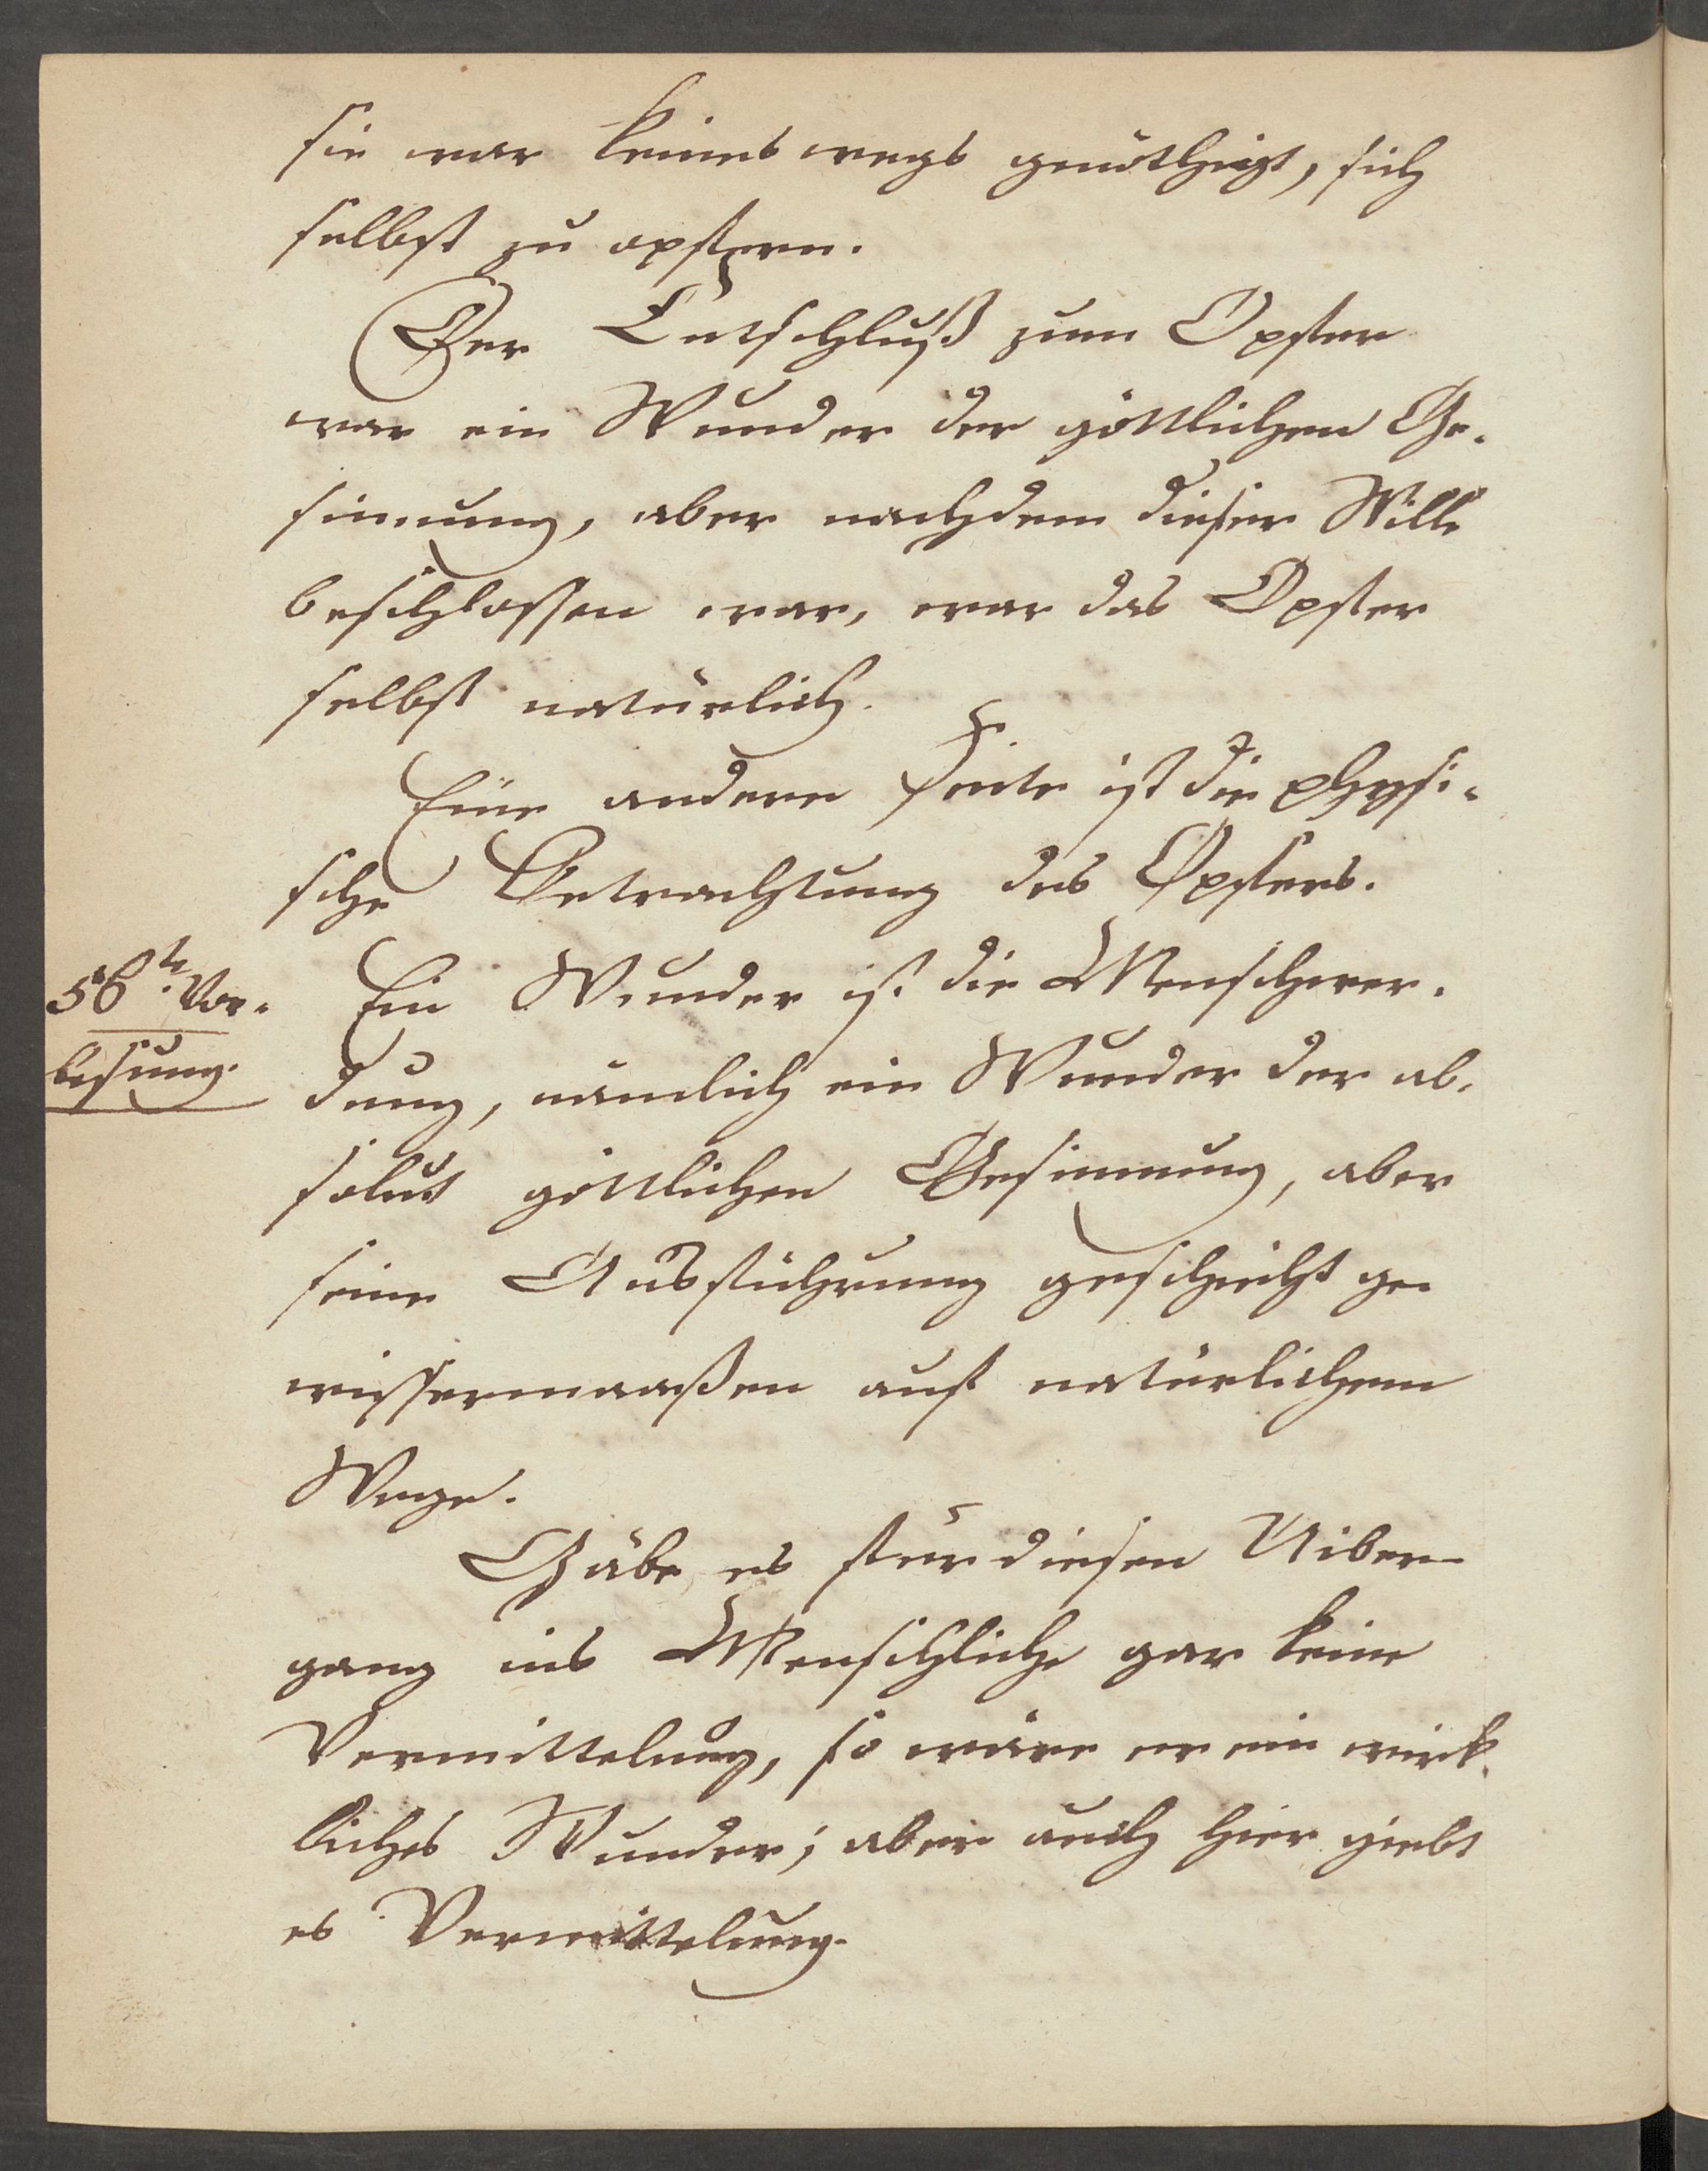 sie war keines wegs genöthigt, sich
selbst zu opfern.
Der Entschluß zum Opfer
war ein Wunder der göttlichen Ge-
sinnung, aber nachdem dieser Wille
beschlossen war, war das Opfer
selbst natürlich.
Eine andere Seite ist die physi-
sche Betrachtung des Opfers.
56te Vor-
lesung.
Ein Wunder ist die Menschwer-
dung, nämlich ein Wunder der ab-
solut göttlichen Gesinnung, aber
seine Ausführung geschieht ge-
wissermaaßen auf natürlichem
Wege.
Gäbe es für diesen Uiber-
gang ins Menschliche gar keine
Vermittelung, so wäre er ein wirk-
liches Wunder; aber auch hier giebt
es Vermittelung.